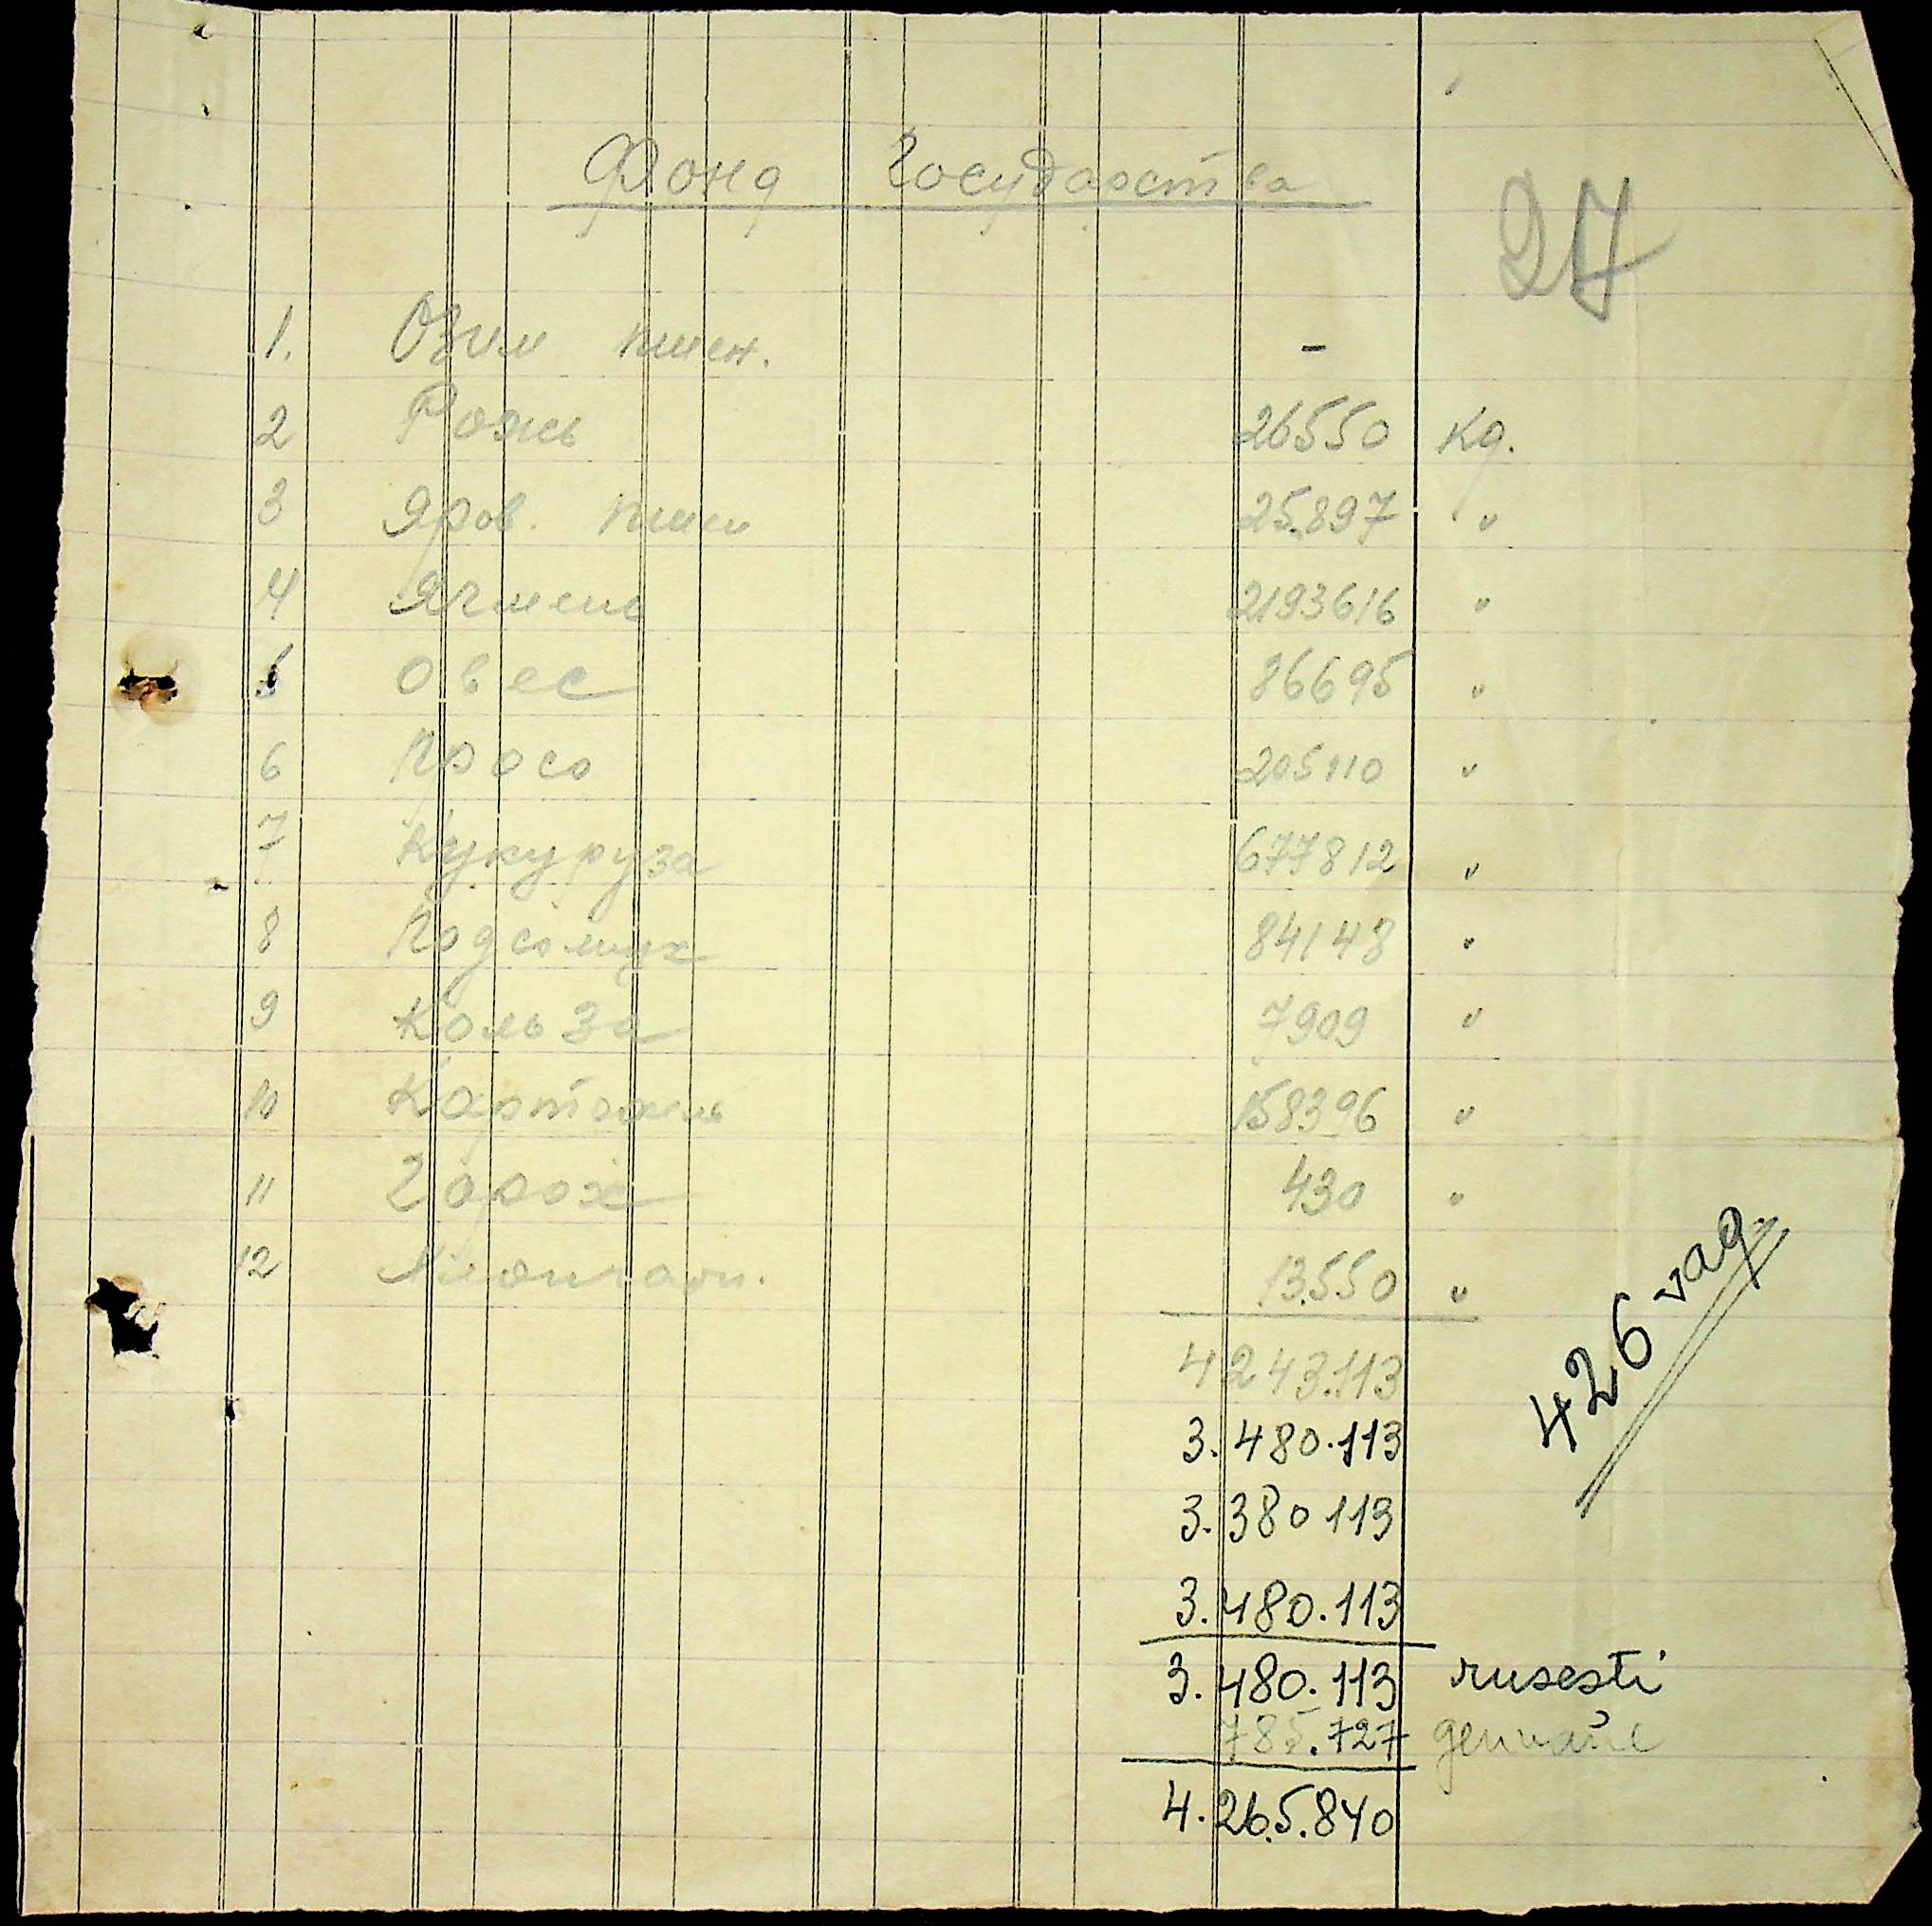 Фонд Государства
27
1. Озим пшен. -
2 Рожь 26550 Kg.
3 Яров. пшен 25.897 "
4 Ячмень 2193616 "
5 Овес 86695 "
6 Просо 205110 "
7 Кукуруза 677812 "
8 Подсолнух 84148 "
9 Кользa 7909 "
10 Картофель 158396 "
11 Горох 430 "
12 13.550 "
4243.113
3.480.113
3.380113
3.480.113
3.480.113 rusesti
785.727 germane
4.265.840
426 vag.